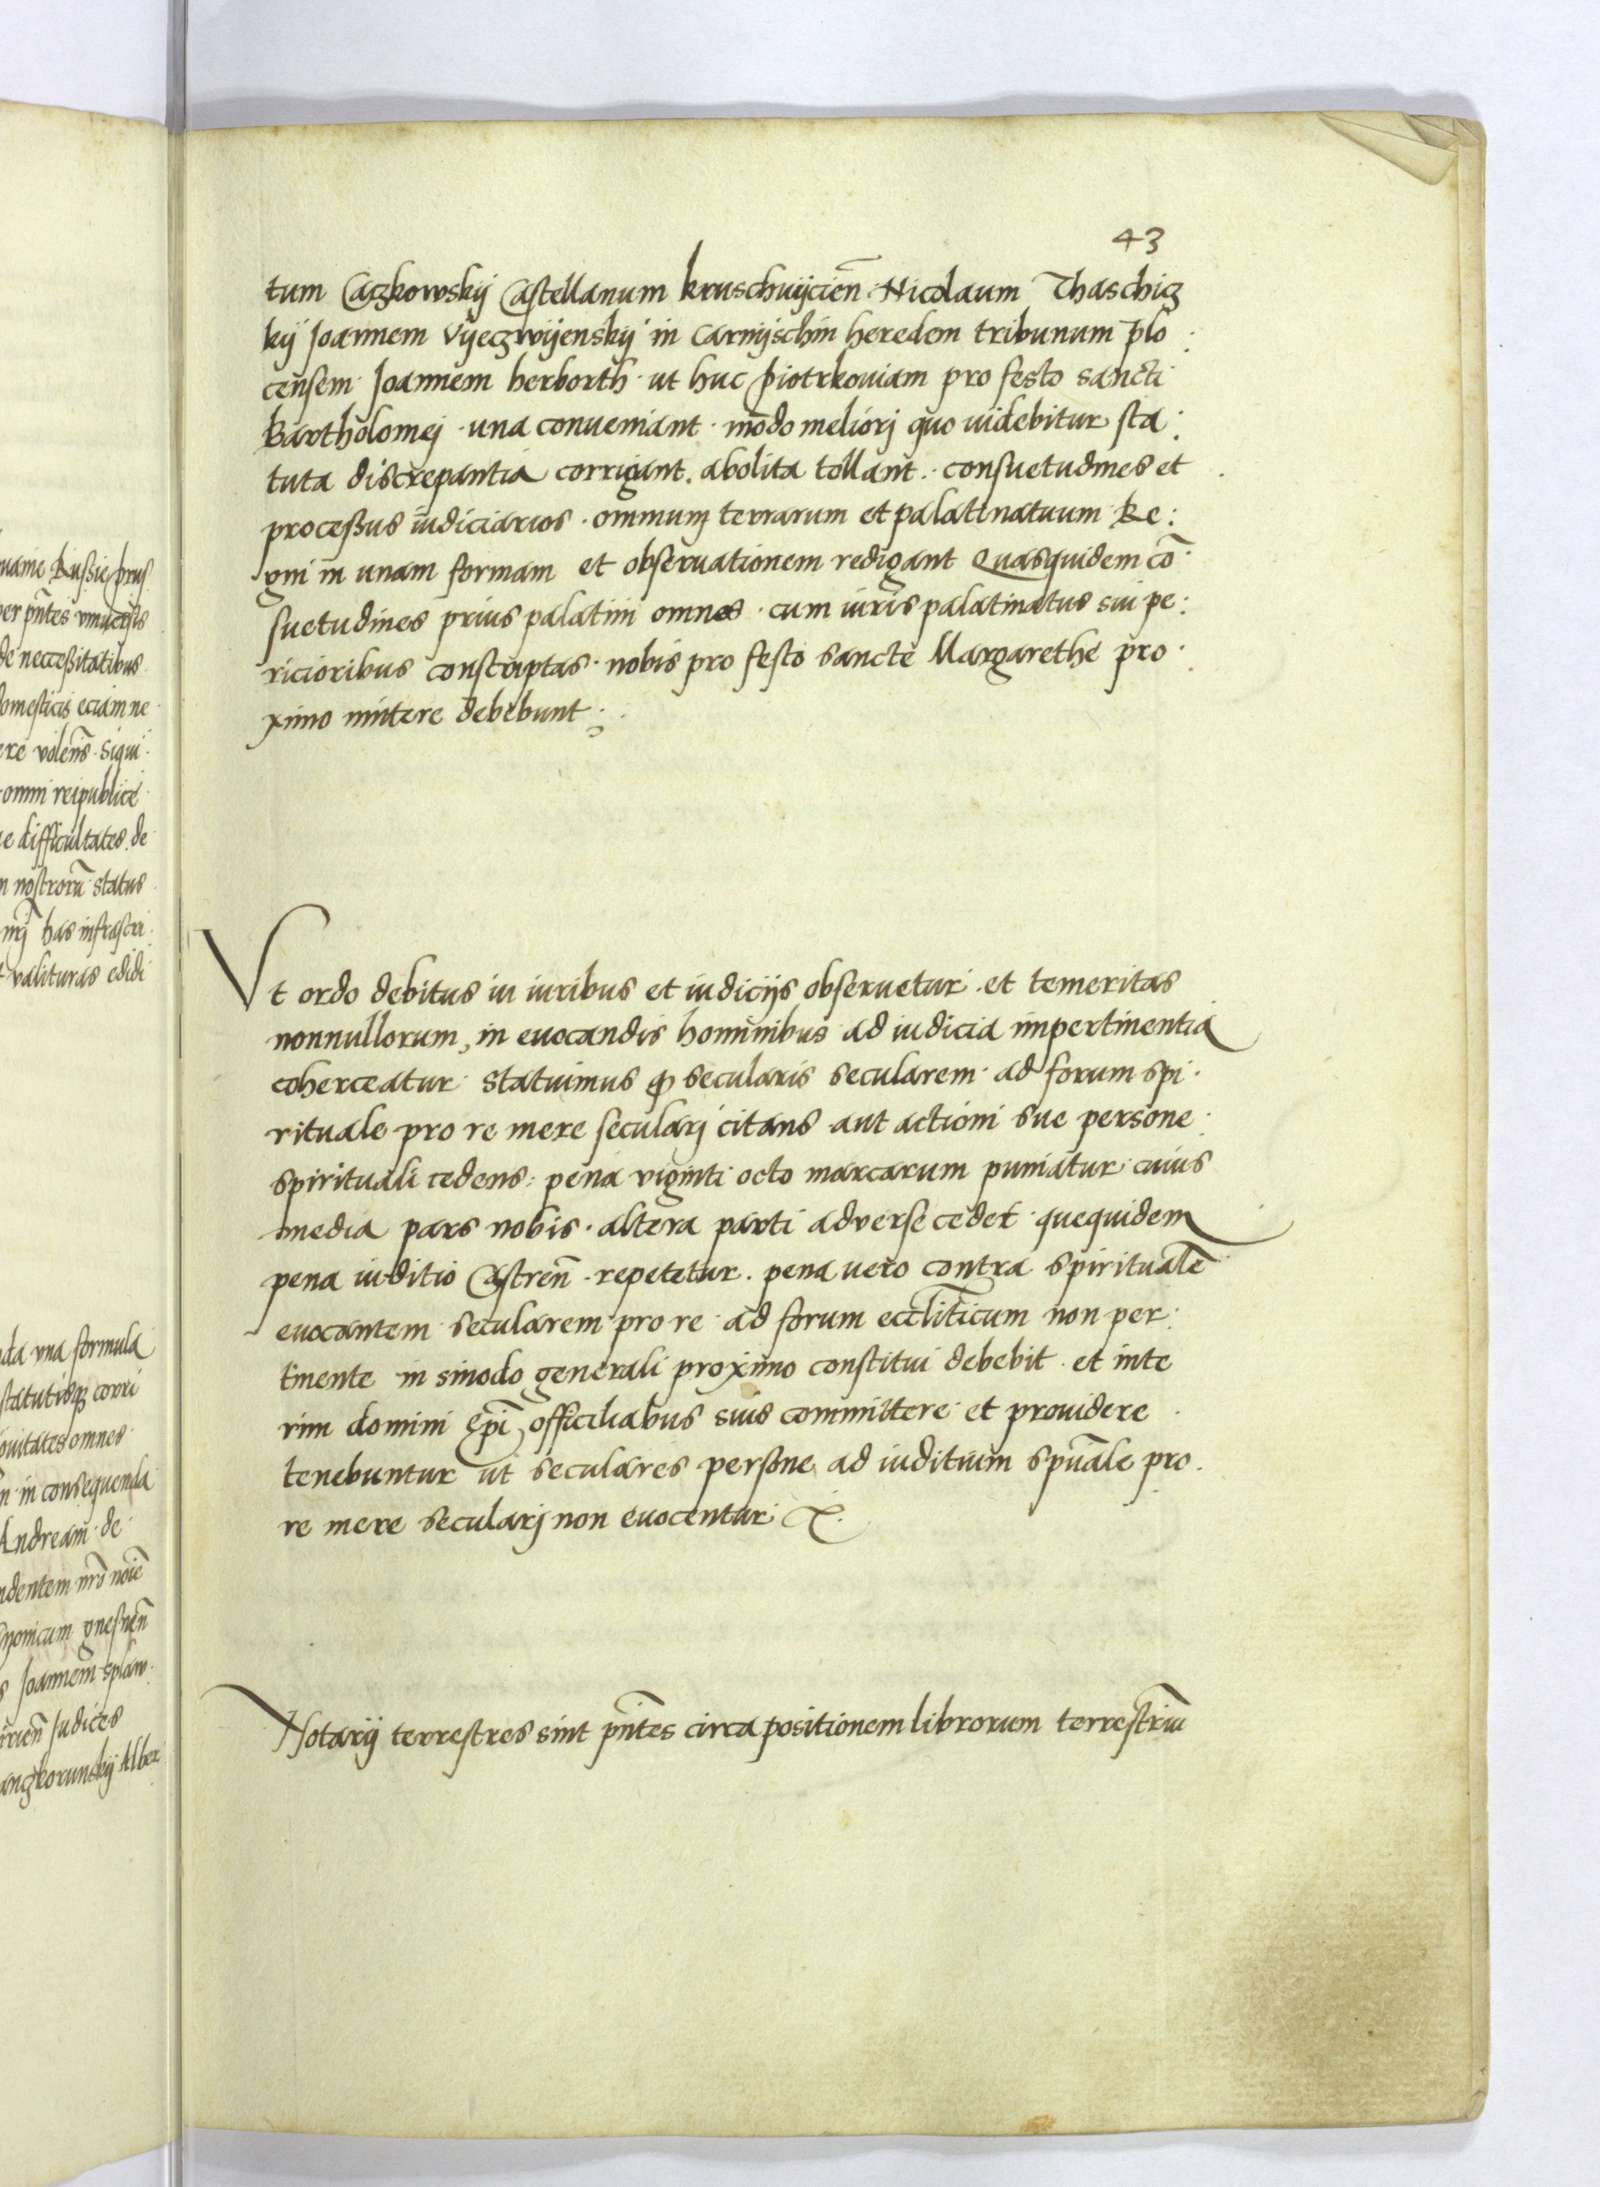 43
tum Caczkowskÿ Castellanum kruschvÿcień · Nicolaum Thaschicz
kÿ Joannem Vÿeczwÿenskÿ in Carnÿschin heredem tribunum plo :
censem · Joannem herborth · ut huc piotrkoviam pro festo sancti
Bartholomej · una conveniant · modo meliorj quo videbitur sta :
tuta discrepantia corrigant . abolita tollant . consuetudines et
processus iudiciarios · omnium terrarum et palatinatuum Re :
gni in unam formam et observationem redigant Quasquidem cō
suetudines prius palatini omnes · cum iuris palatinatus sui pe :
ricioribus conscriptas · nobis pro festo sancte Margarethe pro ·
ximo mittere debebunt :
Vt ordo debitus in iuribus et iudicÿs observetur · et temeritas
nonnullorum, in evocandis hominibus ad iudicia impertinentia
coherceatur · statuimus ꝙ secularis secularem · ad forum spi ·
rituale pro re mere secularj citans aut actioni sue persone ·
spirituali cedens : pena viginti octo marcarum puniatur · cuius
media pars nobis · altera parti adverse cedet · quequidem
pena iuditio Castreñ · repetetur . pena vero contra spiritualē
evocantem secularem pro re ad forum eccl̄iticum non per :
tinente in sinodo generali proximo constitui debebit · et inte
rim domini ep̄i, officialibus suis committere et providere ·
tenebuntur ut seculares persone ad iuditium sp̄uale pro .
re mere secularj non evocentur
Notarÿ terrestres sint p̄ntes circa positionem librorum terrestriū
uanie Russie prus
per p̄ntes vniversis
de neccessitatibus
domesticis eciam ne
ere volens · siqui
omni reipublice
e difficultates de
m nostrorū status
has infrascri
valituras edidi
da vna formula
statutisq; corri
ovitates omnes
n in consequenda
Andream de
dentem nrō noīe
nonicum gnesneñ
s Joannem splaw
irieñ Judices
anczkorunskÿ Alber